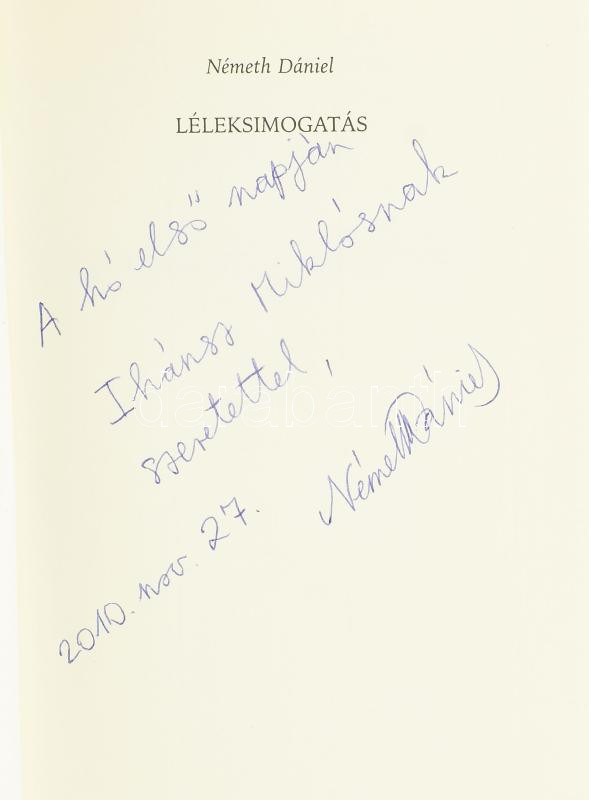 Németh Dániel
LÉLEKSIMOGATÁS
A hó első napján
Ihánsz Miklósnak
szeretettel,
Németh Dániel
2010. nov. 27.
darabanth